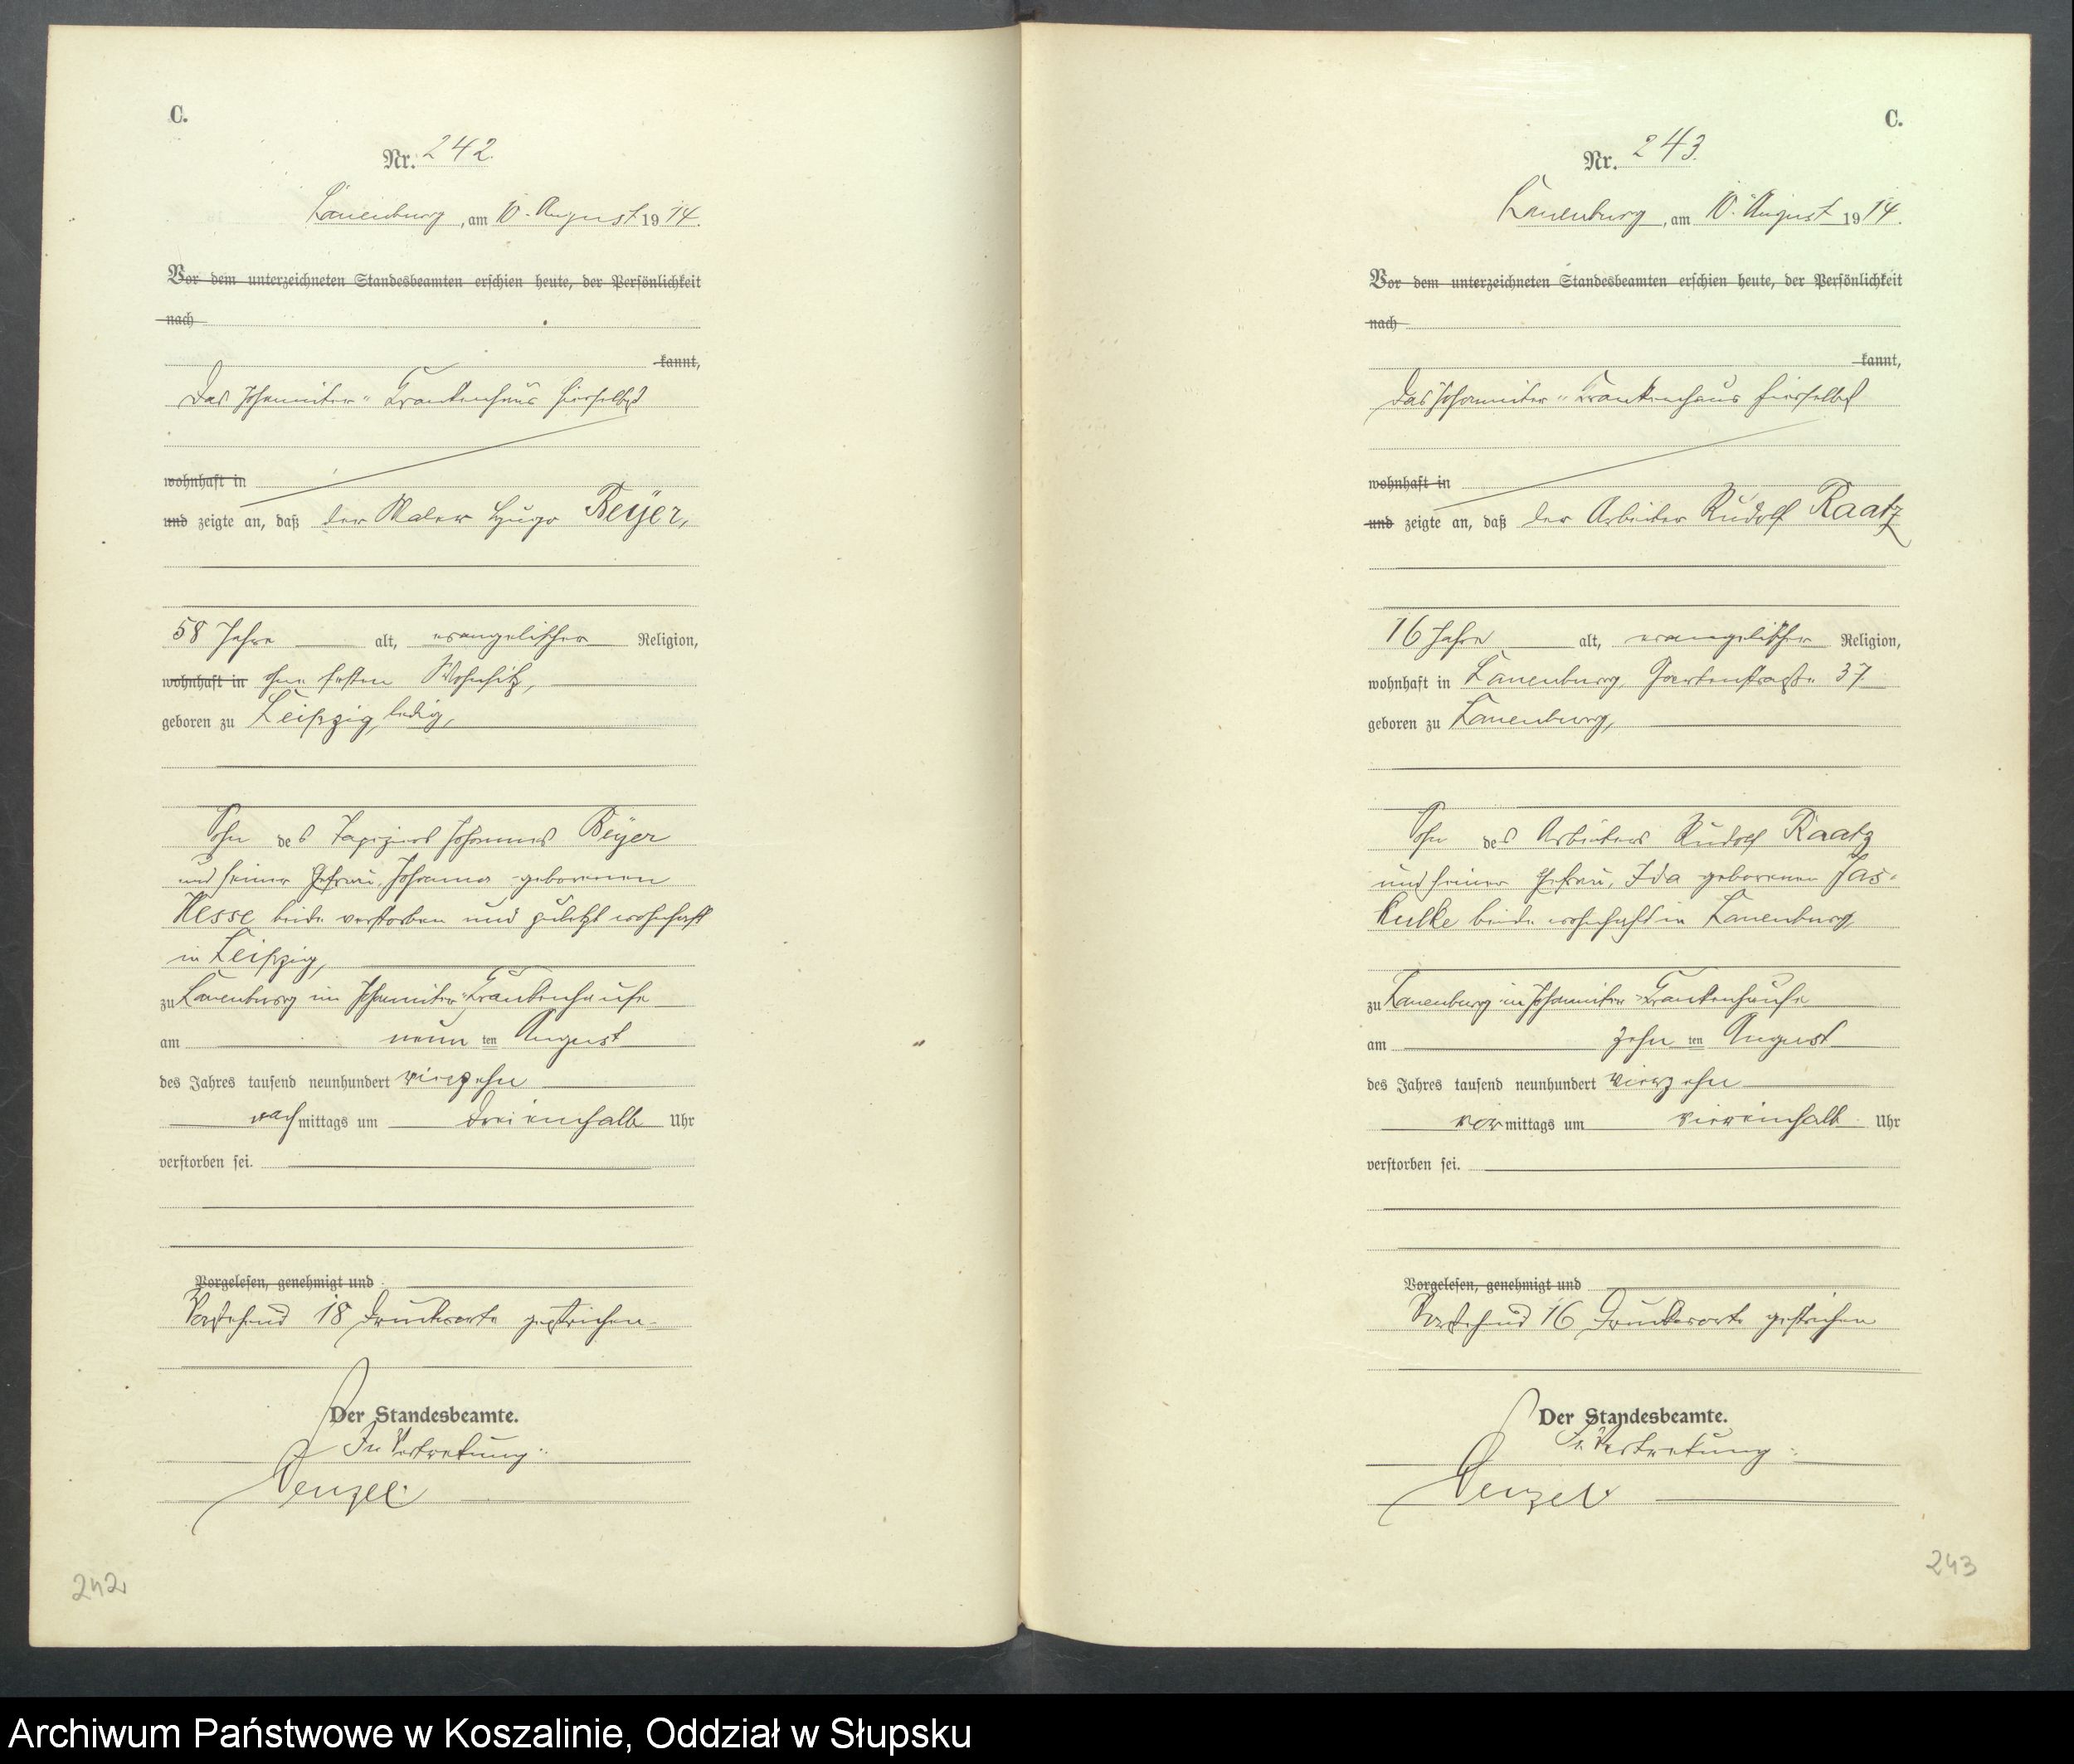 C.
Nr. 242.
Lauenburg, am 10. August 1914.
Vor dem unterzeichneten Standesbeamten erschien heute, der Persönlichkeit
nach
kannt,
das Johanniter-Krankenhaus hierselbst
wohnhaft in
und zeigte an, daß der Maler Hugo Beyer,
58 Jahre alt, evangelischer Religion,
wohnhaft in ohne festen Wohnsitz,
geboren zu Leipzig, ledig,
Sohn des Tapeziers Johannes Beyer
und seiner Ehefrau, Johanna geborenen
Hesse beide verstorben und zuletzt wohnhaft
in Leipzig,
zu Lauenburg im Johanniter-Krankenhause
am neunten August
des Jahres tausend neunhundert vierzehn
nachmittags um dreieinhalb Uhr
verstorben sei.
Vorgelesen, genehmigt und
Vorstehend 18 Druckworte gestrichen.
Der Standesbeamte.
In Vertretung:
Wenzel.
242
C.
Nr. 243.
Lauenburg, am 10. August 1914.
Vor dem unterzeichneten Standesbeamten erschien heute, der Persönlichkeit
nach
kannt,
das Johanniter-Krankenhaus hierselbst
wohnhaft in
und zeigte an, daß der Arbeiter Rudolf Raatz
16 Jahre alt, evangelischer Religion,
wohnhaft in Lauenburg, Gartenstraße 37
geboren zu Lauenburg,
Sohn des Arbeiters Rudolf Raatz
und seiner Ehefrau, Ida geborenen Jas-
kulke beide wohnhaft in Lauenburg,
zu Lauenburg im Johanniter-Krankenhause
am zehnten August
des Jahres tausend neunhundert vierzehn
vormittags um viereinhalb Uhr
verstorben sei.
Vorgelesen, genehmigt und
Vorstehend 16 Druckworte gestrichen
Der Standesbeamte.
In Vertretung:
Wenzel.
243
Archiwum Państwowe w Koszalinie, Oddział w Słupsku